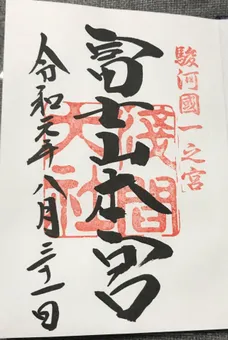 駿河國一之宮
富士山本宮
淺間大社
令和元年八月三十一日